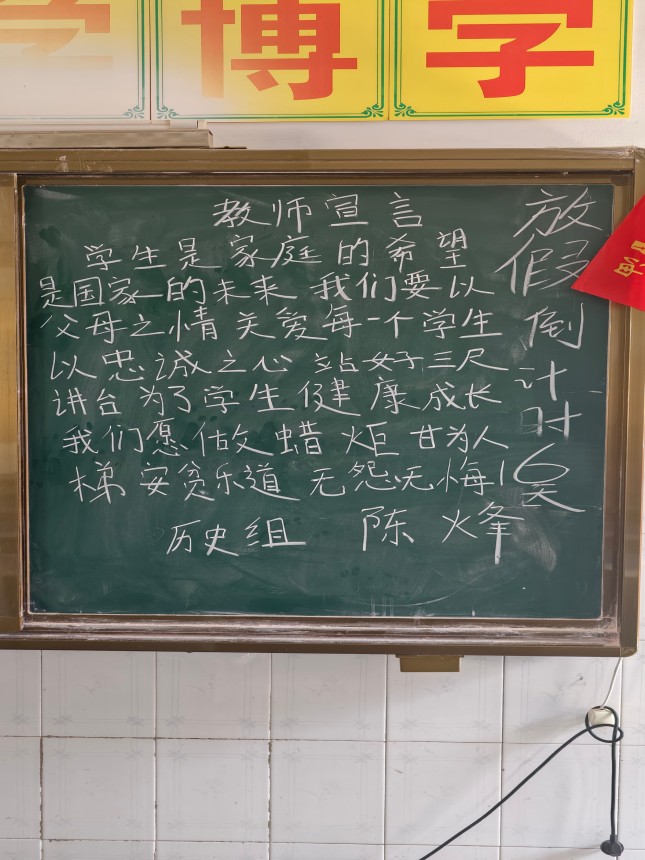 学 博 学
教师宣言
学生是家庭的希望
是国家的未来 我们要以
父母之情关爱每一个学生
以忠诚之心 站好三尺
讲台 为了学生健康成长
我们愿做蜡炬 甘为人
梯 安贫乐道 无怨无悔
历史组 陈烽
放假倒计时16天